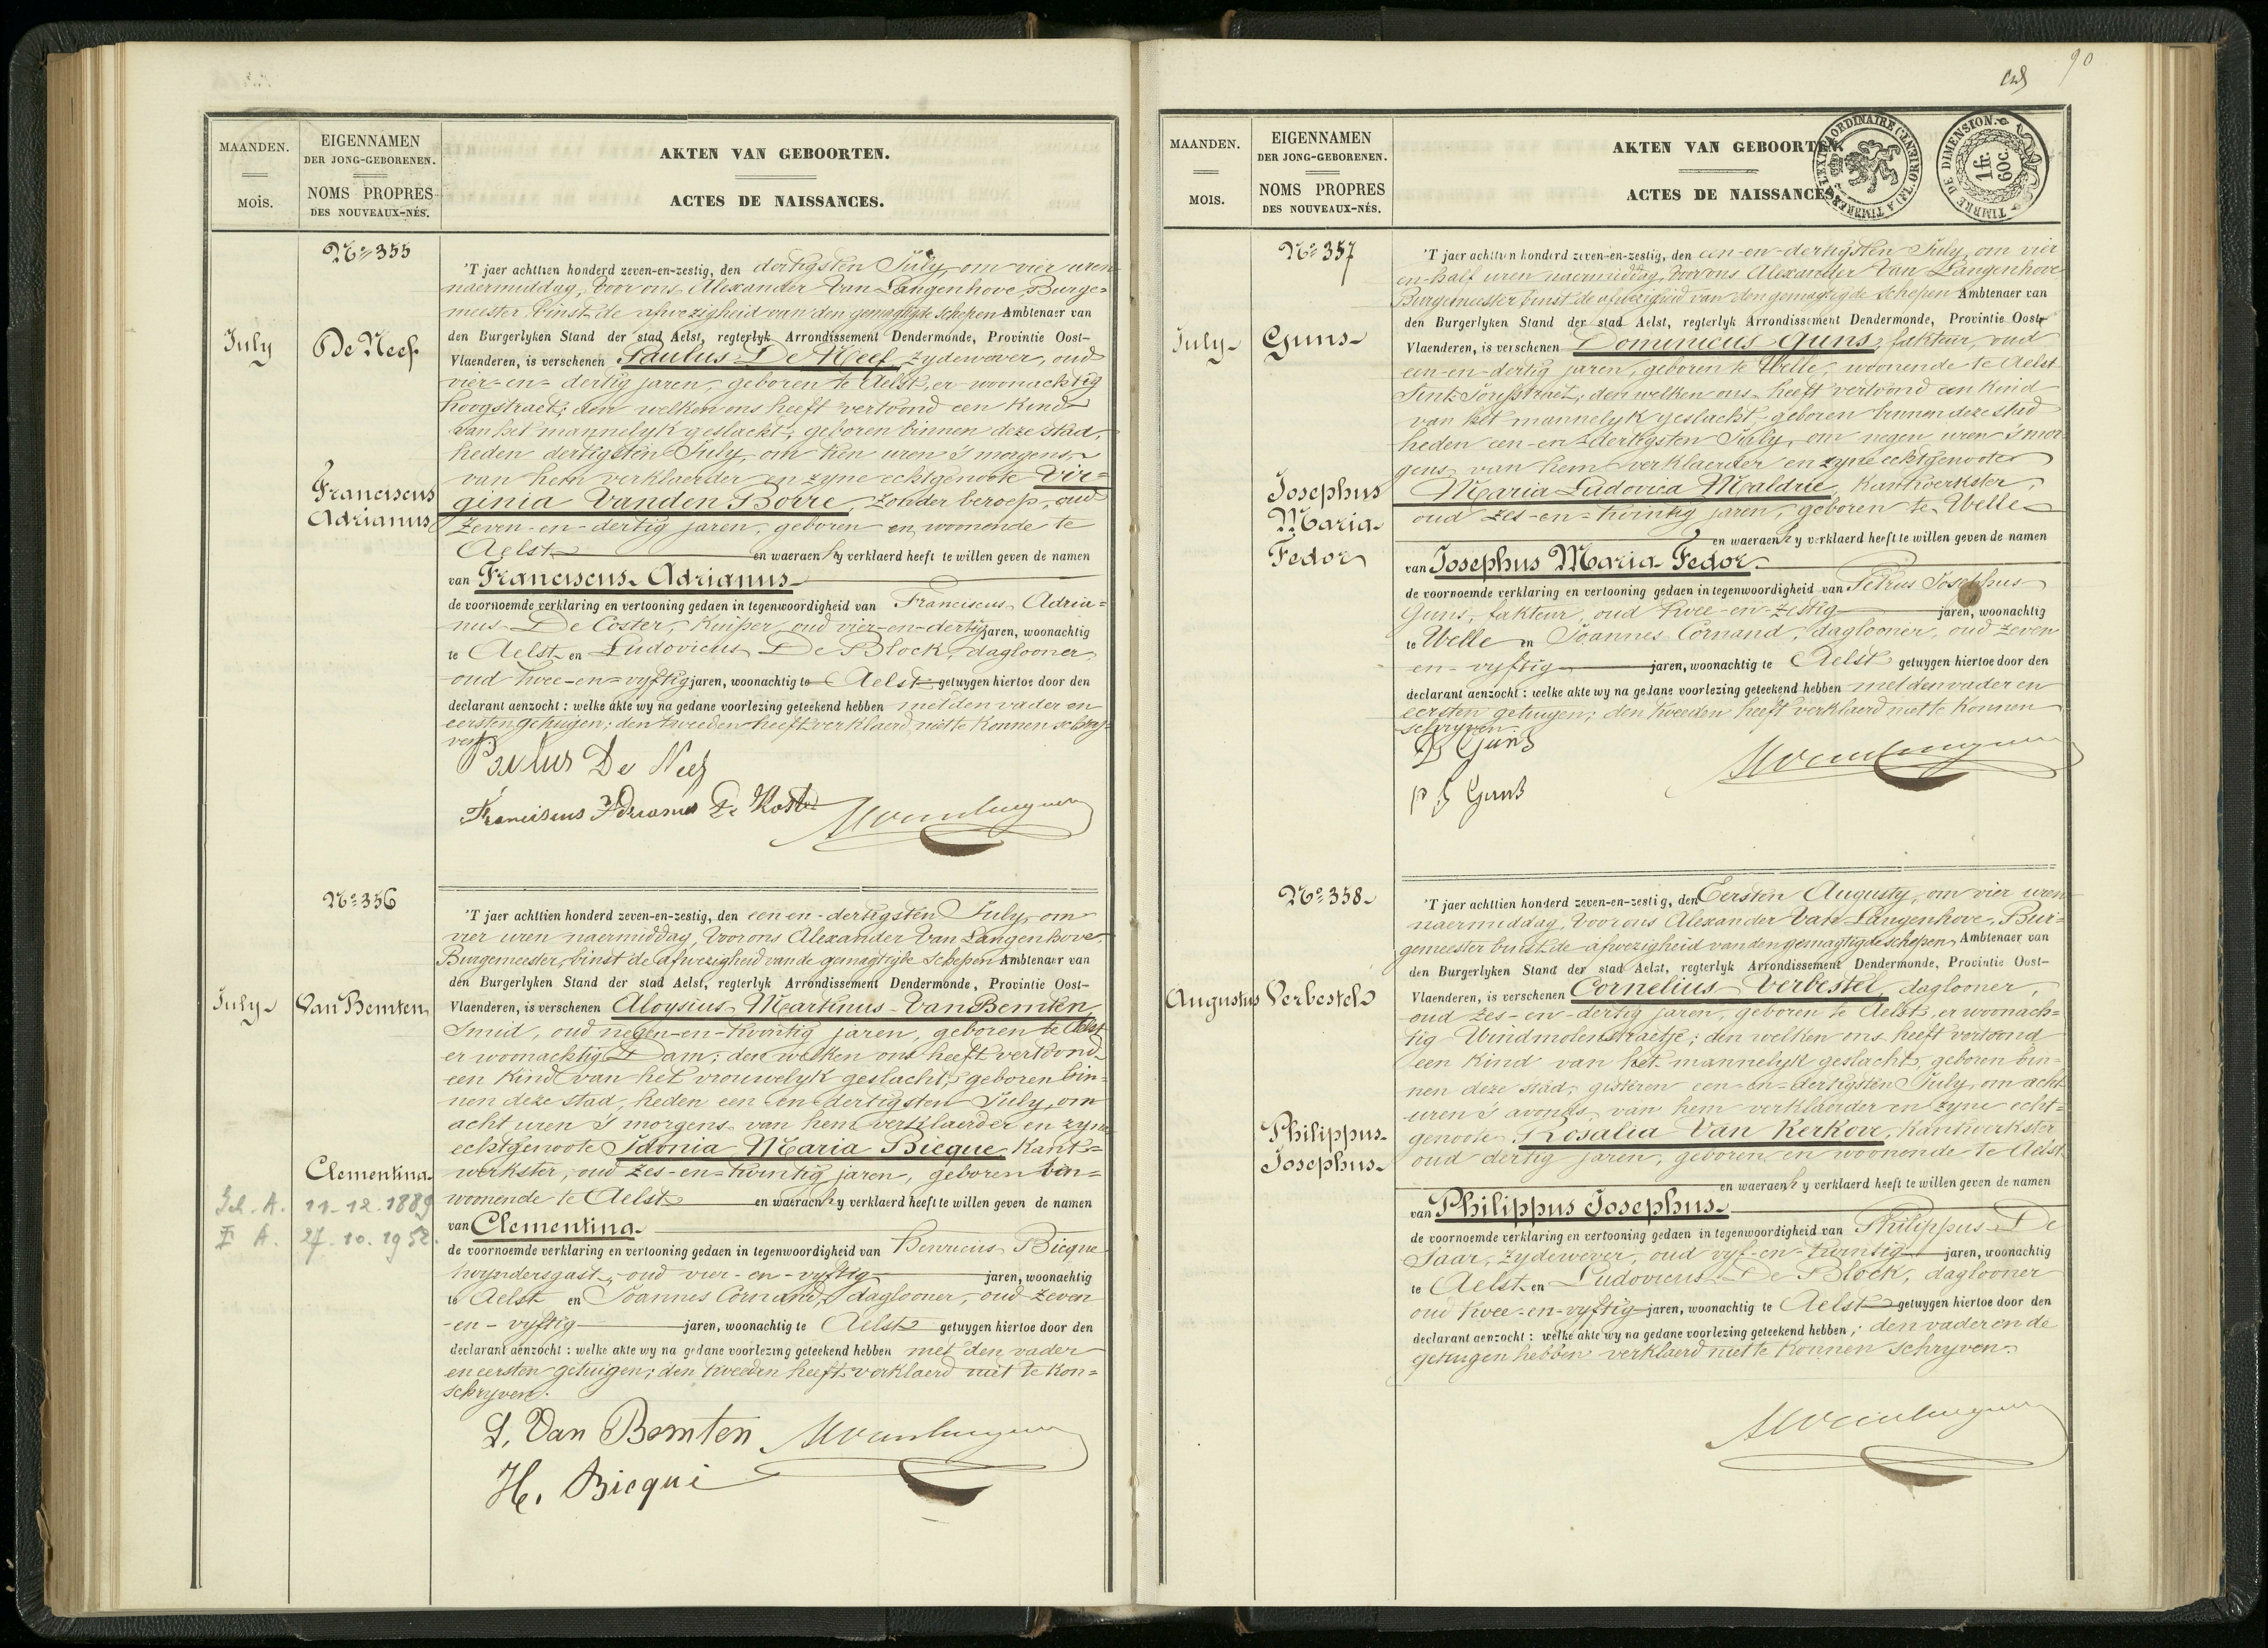 MAANDEN.
MOIS.
EIGENNAMEN
DER JONG-GEBORENEN.
NOMS PROPRES
DES NOUVEAUX-NÉS.
AKTEN VAN GEBOORTEN.
ACTES DE NAISSANCES.
Nº 355
July
De Neef
Franciscus
Adrianus
'T jaer achttien honderd zeven-en-zestig, den dertigsten July, om vier uren
naermiddag, voor ons Alexander Van Langenhove, Burge=
meester, binst de afwezigheid van den gemagtigde schepen Ambtenaer van
den Burgerlyken Stand der stad Aelst, regterlyk Arrondissement Dendermonde, Provintie Oost-
Vlaenderen, is verschenen Paulus De Neef, zydewever, oud
vier-en-dertig jaren, geboren te Aelst, er woonachtig
hoogstraet; den welken ons heeft vertoond een Kind
van het mannelyk geslacht, geboren binnen deze stad,
heden dertigsten July, om tien uren 's morgens,
van hem verklaerder en zyne echtgenoote Vir=
ginia Vanden Borre, zonder beroep, oud
zeven-en-dertig jaren, geboren en woonende te
Aelst en waeraen hy verklaerd heeft te willen geven de namen
van Franciscus Adrianus
de voornoemde verklaring en vertooning gedaen in tegenwoordigheid van Franciscus Adria=
nus De Coster, Kuiper, oud vier-en-dertig jaren, woonachtig
te Aelst en Ludovicus De Block, daglooner,
oud twee-en-vyftig jaren, woonachtig te Aelst getuygen hiertoe door den
declarant aenzocht : welke akte wy na gedane voorlezing geteekend hebben met den vader en
eersten getuigen; den tweeden heeft verklaerd niet te konnen schry=
ven.
Paulus De Neef
Franciscus Adrianus De Koster
Nº 356
July
Van Bemten
Clementina
11-12-1889
27.10.1952.
'T jaer achttien honderd zeven-en-zestig, den een en-dertigsten July, om
vier uren naermiddag, voor ons Alexander Van Langenhove,
Burgemeester, binst de afwezigheid van de gemagtigde schepen Ambtenaer van
den Burgerlyken Stand der stad Aelst, regterlyk Arrondissement Dendermonde, Provintie Oost-
Vlaenderen, is verschenen Aloysius Martinus Van Bemten,
Smid, oud negen-en-twintig jaren, geboren te Aelst
er woonachtig Dam; den welken ons heeft vertoond
een Kind van het vrouwelyk geslacht, geboren bin=
nen deze stad, heden een en dertigsten July, om
acht uren 's morgens van hem verklaerder en zyne
echtgenoote Idonia Maria Bicque, Kant=
werkster, oud zes-en-twintig jaren, geboren
woonende te Aelst en waeraen hy verklaerd heeft te willen geven de namen
van Clementina
de voornoemde verklaring en vertooning gedaen in tegenwoordigheid van Henricus Bicque
oud vier-en-vyftig jaren, woonachtig
te Aelst en Joannes Cornand, daglooner, oud zeven
-en-vyftig jaren, woonachtig te Aelst getuygen hiertoe door den
declarant aenzocht : welke akte wy na gedane voorlezing geteekend hebben met den vader
en eersten getuigen; den tweeden heeft verklaerd niet te kon=
schryven.
L. Van Bemten
H. Bicqué
90
MAANDEN.
MOIS.
EIGENNAMEN
DER JONG-GEBORENEN.
NOMS PROPRES
DES NOUVEAUX-NÉS.
AKTEN VAN GEBOORTEN.
ACTES DE NAISSANCES.
TIMBRE DE DIMENSION.
1 fr. 60 c.
Nº 357
July
Guns
Josephus
Maria
Fedor
'T jaer achttien honderd zeven-en-zestig, den een-en-dertigsten July, om vier
en-half uren naermiddag, voor ons Alexander Van Langenhove
Burgemeester binst de afwezigheid van den gemagtigde schepen Ambtenaer van
den Burgerlyken Stand der stad Aelst, regterlyk Arrondissement Dendermonde, Provintie Oost-
Vlaenderen, is verschenen Dominicus Guns, fakteur, oud
een-en-dertig jaren, geboren te Welle, woonende te Aelst
den welken ons heeft vertoond een Kind
van het mannelyk geslacht, geboren binnen deze stad
heden een-en-dertigsten July, om negen uren 's mor=
gens, van hem verklaerder en zyne echtgenoote
Maria Ludovica Maldrie, Kantwerkster,
oud zes-en-twintig jaren, geboren te Welle
en waeraen hy verklaerd heeft te willen geven de namen
van Josephus Maria Fedor.
de voornoemde verklaring en vertooning gedaen in tegenwoordigheid van Petrus Josephus
Guns, fakteur, oud twee-en-zestig jaren, woonachtig
te Welle en Joannes Cornand, daglooner, oud zeven
en-vyftig jaren, woonachtig te Aelst getuygen hiertoe door den
declarant aenzocht : welke akte wy na gedane voorlezing geteekend hebben met den vader en
eersten getuigen; den tweeden heeft verklaerd niet te konnen
schryven.
D Guns
P J Guns
Nº 358
Augustus
Verbestel
Philippus
Josephus
'T jaer achttien honderd zeven-en-zestig, den Eersten Augusty, om vier uren
naermiddag, voor ons Alexander Van Langenhove, Bur=
gemeester binst de afwezigheid van den gemagtigde schepen Ambtenaer van
den Burgerlyken Stand der stad Aelst, regterlyk Arrondissement Dendermonde, Provintie Oost-
Vlaenderen, is verschenen Cornelius Verbestel, daglooner,
oud zes-en-dertig jaren, geboren te Aelst, er woonach=
tig Windmolenstraetje; den welken ons heeft vertoond
een Kind van het mannelyk geslacht, geboren bin=
nen deze stad, gisteren een-en-dertigsten July, om acht
uren 's avonds, van hem verklaerder en zyne echt=
genoote Rosalia Van Kerkove, Kantwerkster
oud dertig jaren, geboren en woonende te Aelst
en waeraen hy verklaerd heeft te willen geven de namen
van Philippus Josephus
de voornoemde verklaring en vertooning gedaen in tegenwoordigheid van Philippus De
Saar, zydewever, oud vyf-en-twintig jaren, woonachtig
te Aelst en Ludovicus De Block, daglooner
oud twee-en-vyftig jaren, woonachtig te Aelst getuygen hiertoe door den
declarant aenzocht : welke akte wy na gedane voorlezing geteekend hebben; den vader en de
getuigen hebben verklaerd niet te konnen schryven.